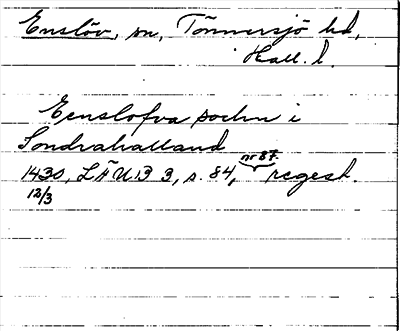 Enslöv, sn, Tönnersjö hd,
Hall. l.
Eenslofva sochn i
Sondrahalland
nr 87.
1430, LÄUB 3, s. 84, regest.
12/3